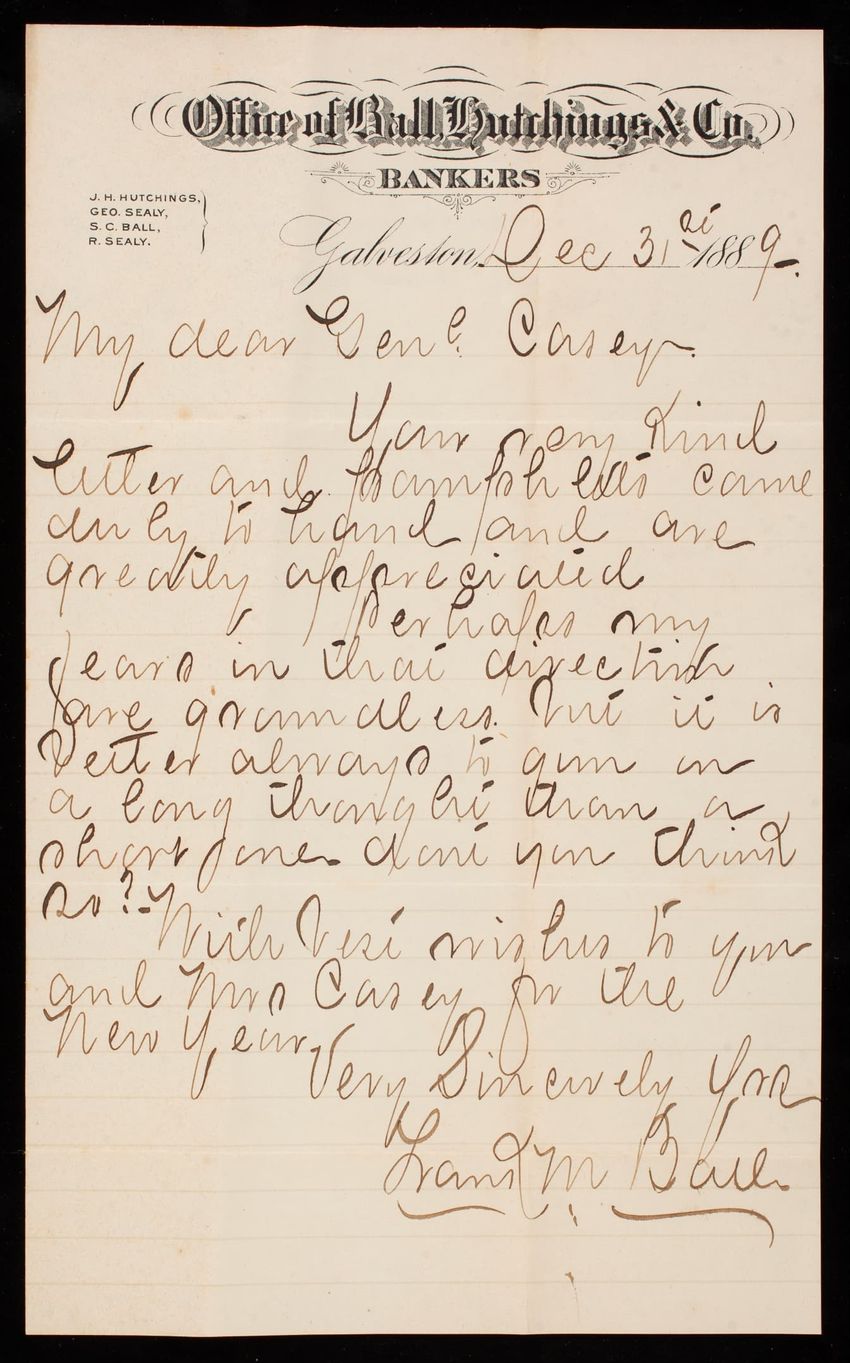 Office of Ball, Hutchings & Co.
BANKERS
J. H. HUTCHINGS,
GEO. SEALY,
S. C. BALL,
R. SEALY.
Galveston, Dec 31st 1889.
My dear Genl. Casey.
Your very kind
letter and pamphlets came
duly to hand and are
greatly appreciated
Perhaps my
fears in that direction
are groundless. but it is
better always to gun on
a long thought than a
short one. dont you think
so?
With best wishes to you
and Mrs Casey for the
New Year.
Very Sincerely Yrs
Frank M Ball